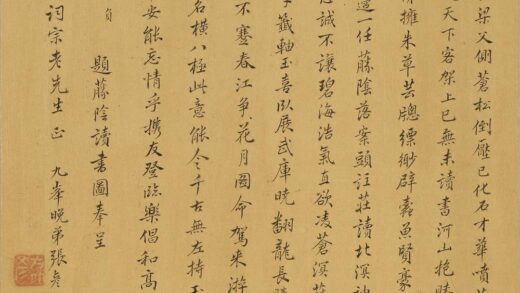 梁父側蒼松倒壓已化石才華噴
天下客架上已無未讀書河山艳
擁朱草芸牕縹緲辟蠹魚賢豪
這一任藤陰落案頭註莊讀北溟
誠不讓碧海浩氣直欲凌蒼溟
籤軸玉喜臥展武庫曉翻龍長
不蹇春江爭花月圖命駕來游
名橫八極此意能令千古無左持
安能忘情乎携友登臨樂倡和高
負
題藤陰讀書圖奉呈
詞宗老先生正 九峯晚弟張